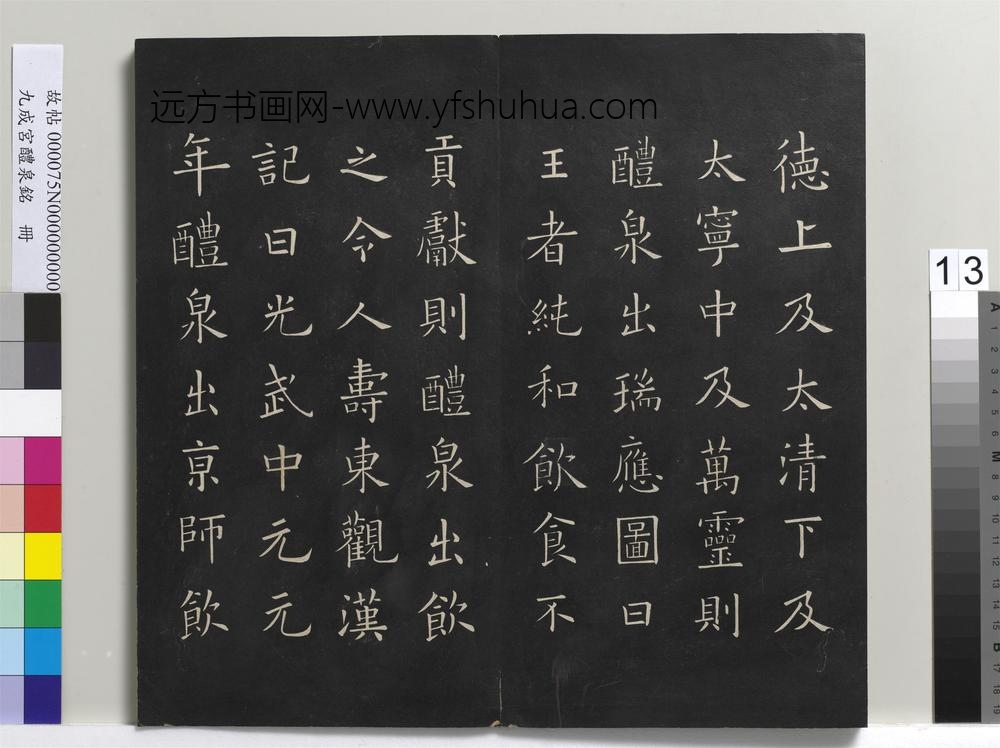 远方书画网-www.yfshuhua.com
德上及太清下及
太寧中及萬靈則
醴泉出瑞應圖曰
王者純和飲食不
貢獻則醴泉出飲
之令人壽東觀漢
記曰光武中元元
年醴泉出京師飲
故帖 000075N000000000
九成宮醴泉銘 冊
13
A 1 2 3 4 5 6 M 8 9 10 11 12 13 14 15 B 17 18 19